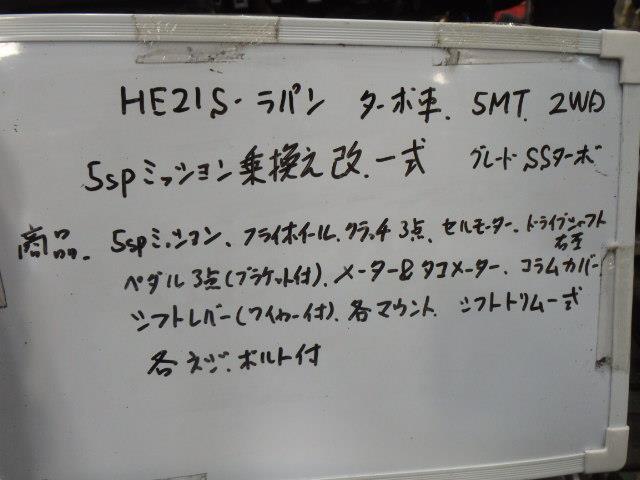 HE21S. ラパン ターボ車. 5MT. 2WD
5spミッション乗換え改.一式 グレードSSターボ
商品. 5spミッション、フライホイール、クラッチ3点、セルモーター、ドライブシャフト左右
ペダル3点(ブラケット付)、メーター&タコメーター、コラムカバー
シフトレバー(ワイヤー付)、各マウント、シフトトリム一式
各ネジ.ボルト付